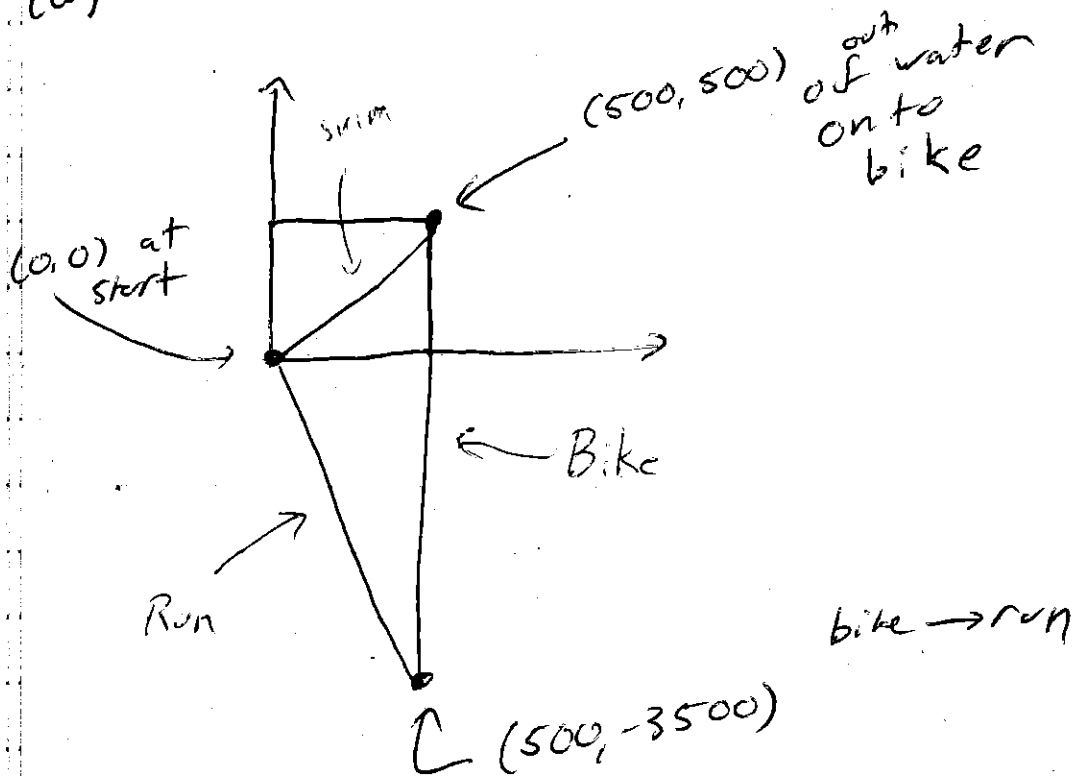 (a)
(500, 500) out
of water
on to
bike
swim
(0,0) at
start
Bike
Run
bike → run
(500, -3500)